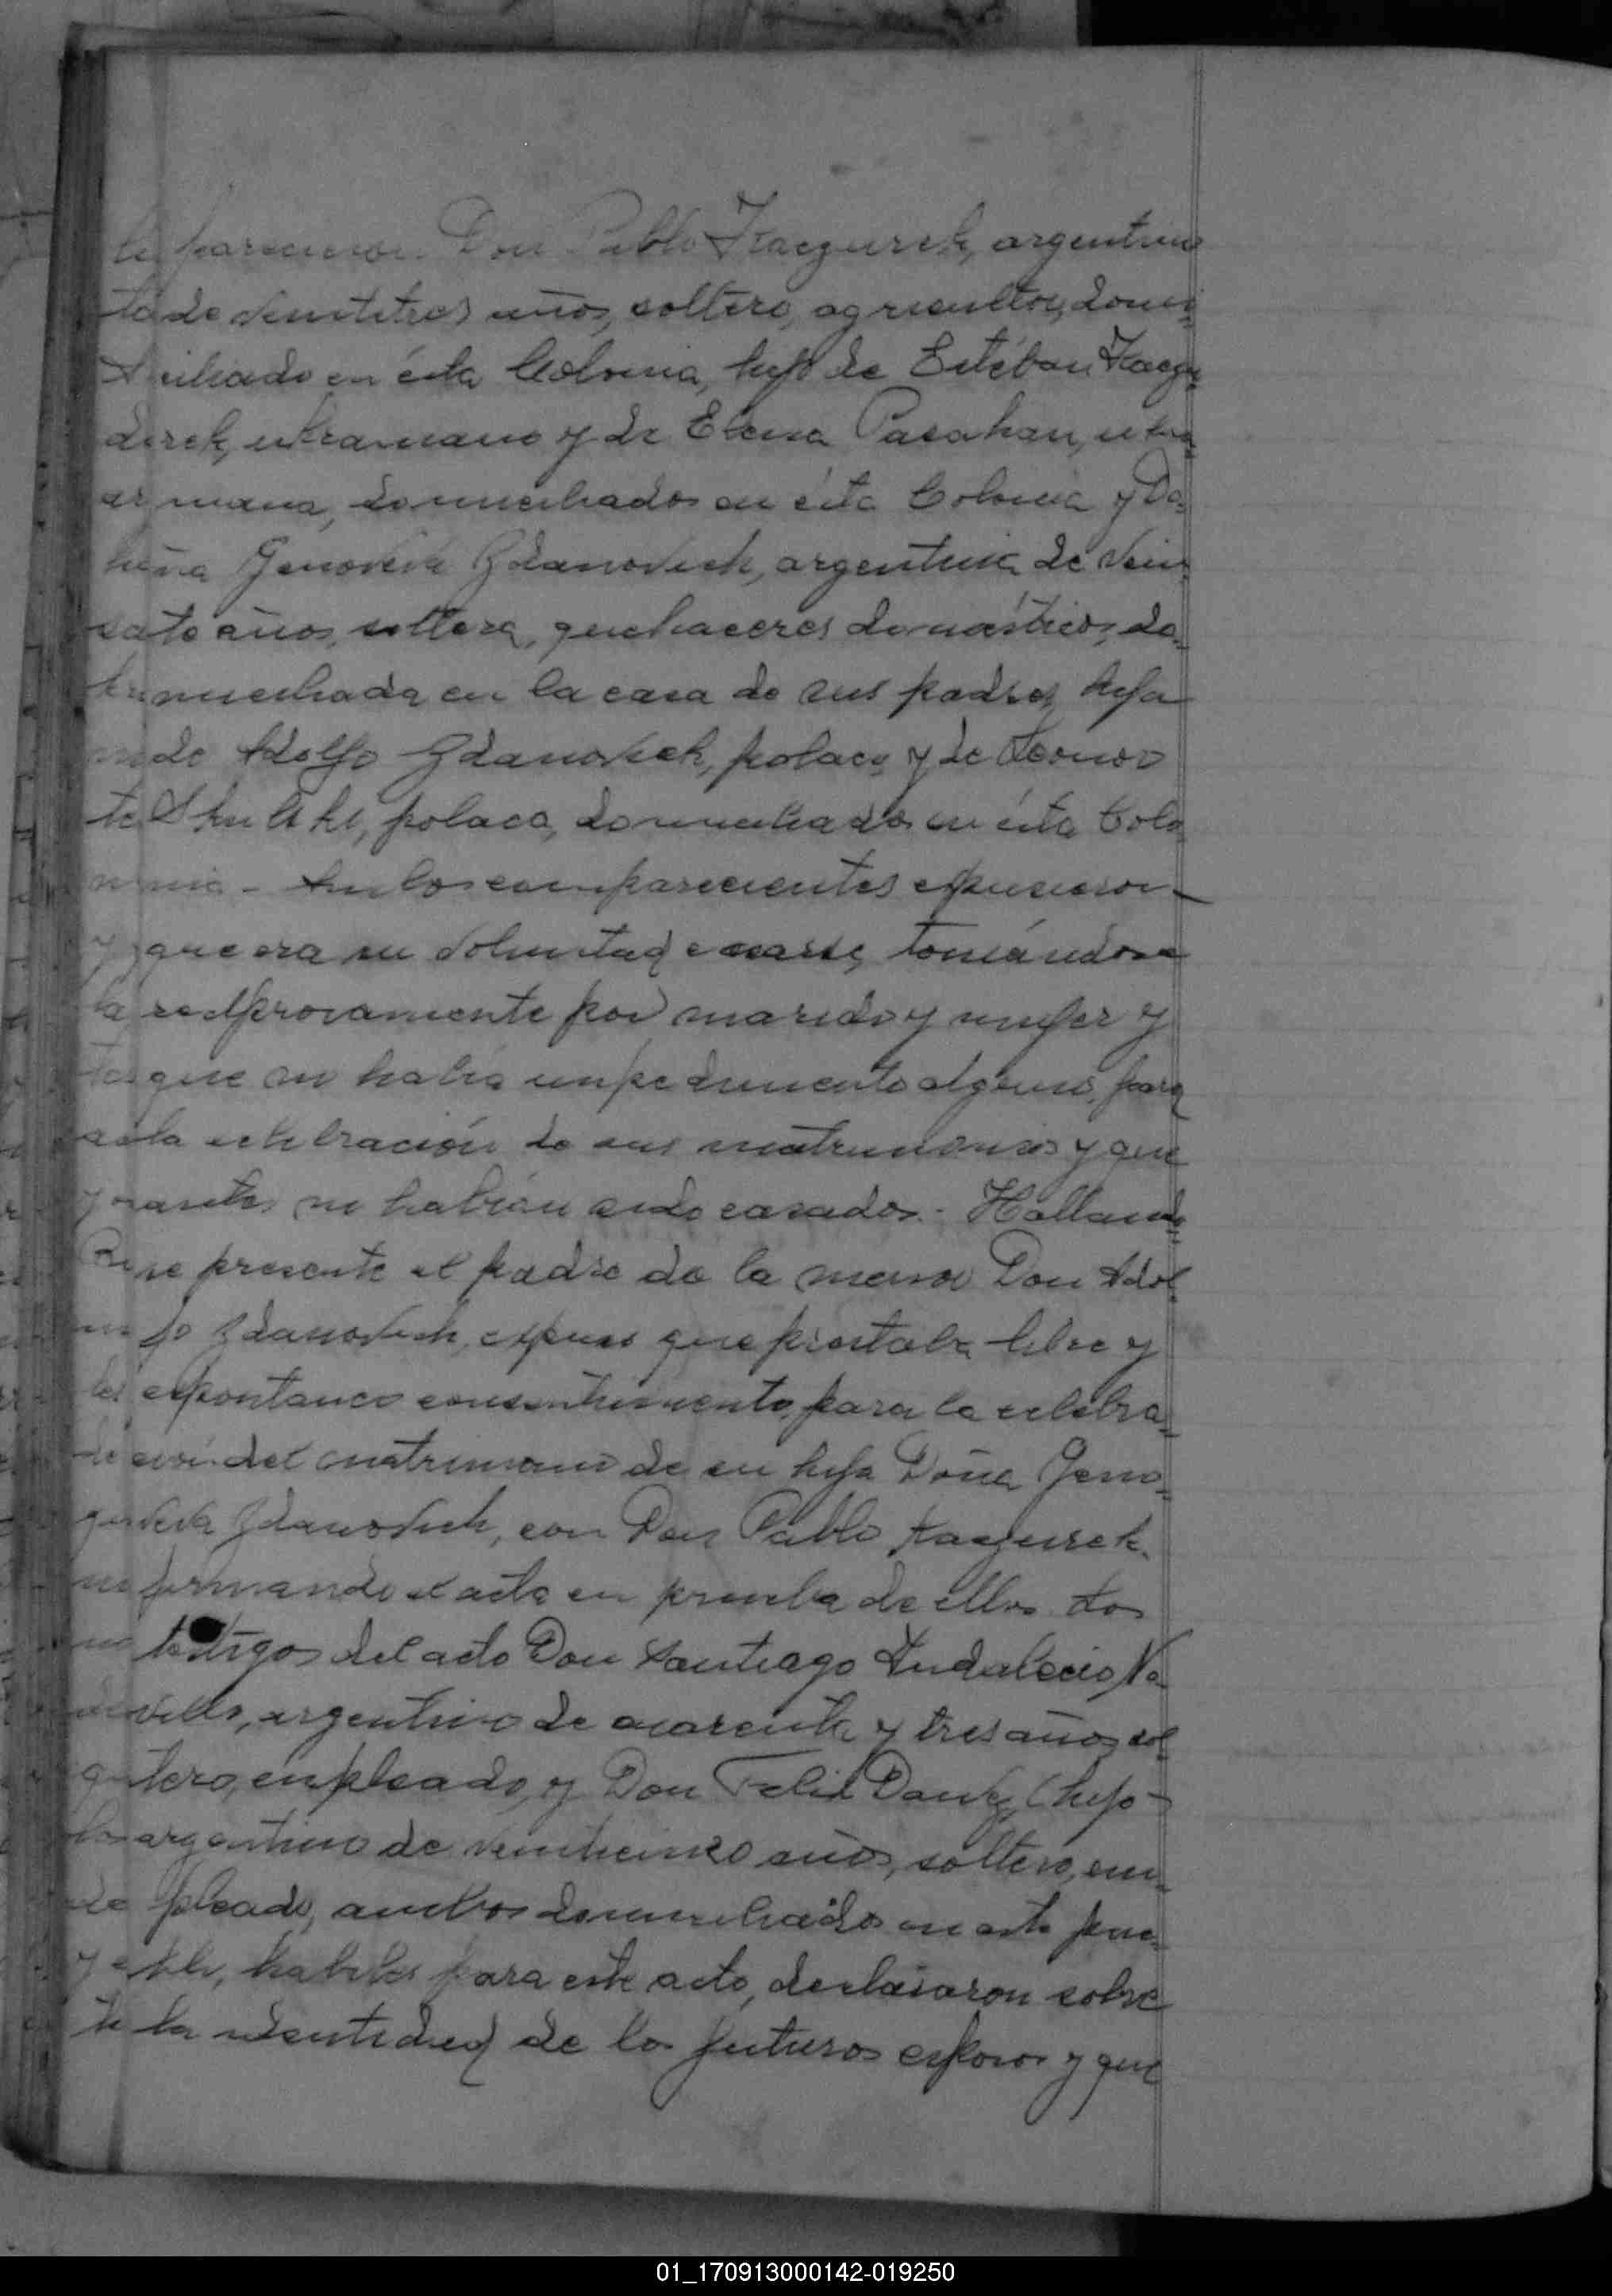 parecieron Don Pablo Kaczurek, argentino
de veintitres años, soltero, agricultor, domi=
ciliado en ésta Colonia, hijo de Estéban
ukraniano y de Elena ukra
niana, domiciliados en ésta Colonia y Do=
ña Genoveva Zdanovich, argentina de
años, soltera, quehaceres domésticos, do=
miciliada en la casa de sus padres, hija
de Adolfo Zdanovich, polaco, y de
polaca, domiciliados en ésta Colo
nia - los comparecientes expusieron -
que era su voluntad casarse, tomándose
reciprocamente por marido y mujer y
que no había impedimento alguno, para
la celebración de sus matrimonios y que
antes no habían sido casados.- Hallando=
se presente el padre de la menor Don Adol=
fo Zdanovich, expuso que prestaba libre y
espontaneo consentimiento, para la celebra=
ción del matrimonio de su hija Doña Geno=
veva Zdanovich, con Don Pablo Kaczurek.
firmando el acta en prueba de ello. Los
testigos del acto Don Santiago Indalecio
argentino de cuarenta y tres años, sol=
tero, empleado, y Don Felix
argentino de veinticinco años, soltero, em=
pleado, ambos domiciliados en este pue=
blo, habiles para este acto, declararon sobre
la identidad de los futuros esposos y que
01_170913000142-019250